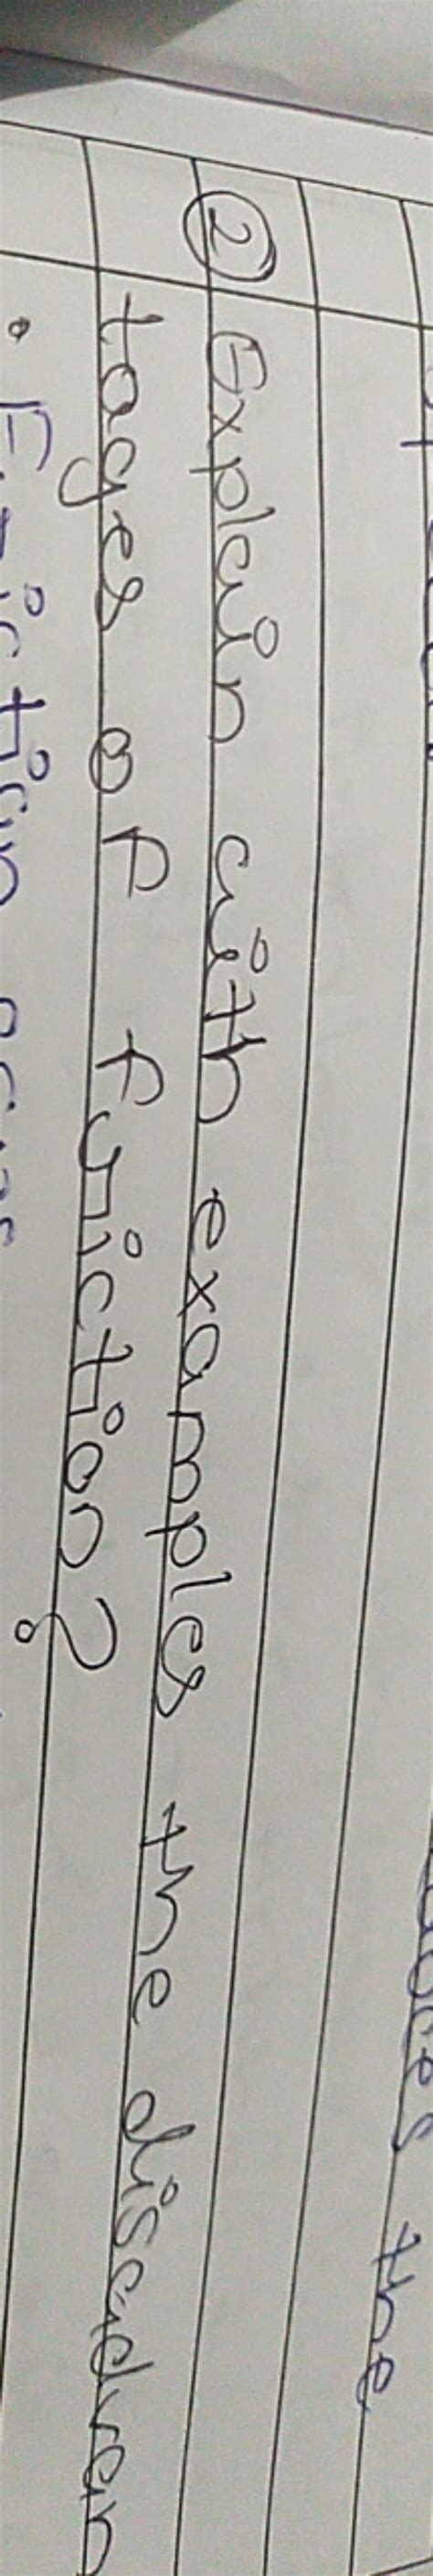 the
② Explain with examples the disadvan
tages of friction?
• Friction